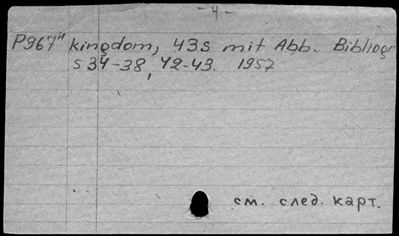 - 4 -
P967" kingdom, 43s mit Abb. Bibliogr
s 34-38, 42-43. 1957
см. след. карт.